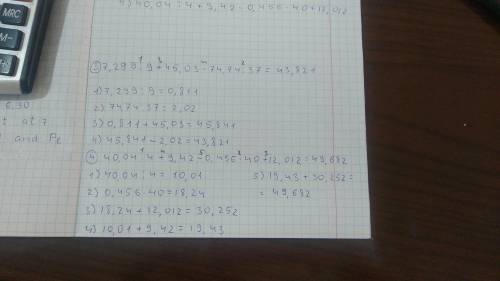 4) 40,04 : 4 + 9,42 - 0,456 · 40 + 12,012
MRC
M-
③ 7,299 : 9 + 45,03 - 74,74 : 37 = 43,821
1) 7,299 : 9 = 0,811
2) 74,74 : 37 = 2,02
3) 0,811 + 45,03 = 45,841
4) 45,841 - 2,02 = 43,821
④ 40,04 : 4 + 9,42 - 0,456 · 40 + 12,012 = 49,682
1) 40,04 : 4 = 10,01
2) 0,456 · 40 = 18,24
3) 18,24 + 12,012 = 30,252
4) 10,01 + 9,42 = 19,43
5) 19,43 + 30,252 =
= 49,682
6.30
at 7
and